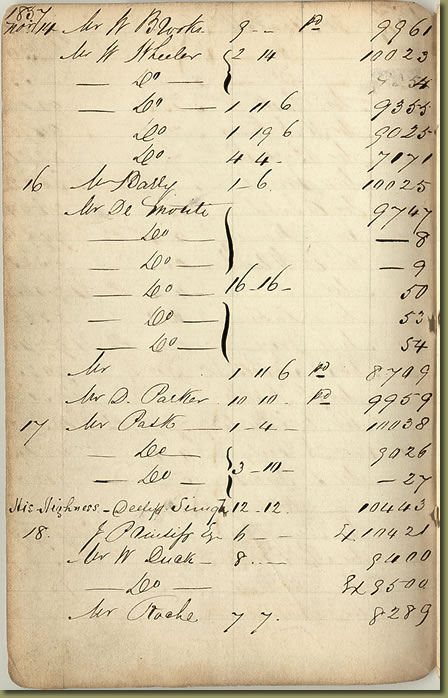 1857
Novr 14 Mr W Brooks 9 - - pd 9961
Mr W Wheeler 2 14 10023
— Do — 9254
— Do — 1 11 6 9355
Do 1 19 6 9025
Do 4 4 - 7171
16 Mr Barry 1 - 6 10025
Mr De 9747
— Do — — 8
— Do — — 9
— Do — 16 - 16 - 50
— Do — 53
— Do — 54
Mr 1 11 6 pd 8709
Mr D. Parker 10 10 - pd 9959
17 Mr Pask — 1 - 4 - 10038
— Do — 9026
— Do — 3 - 10 - - 27
His Highness - Singh 12 - 12. 10443
18. J Esq 6 - - Ex 10421
Mr W Duck - 8 - - 9400
— Do — Ex 9500
Mr Roche 7 7. 8289